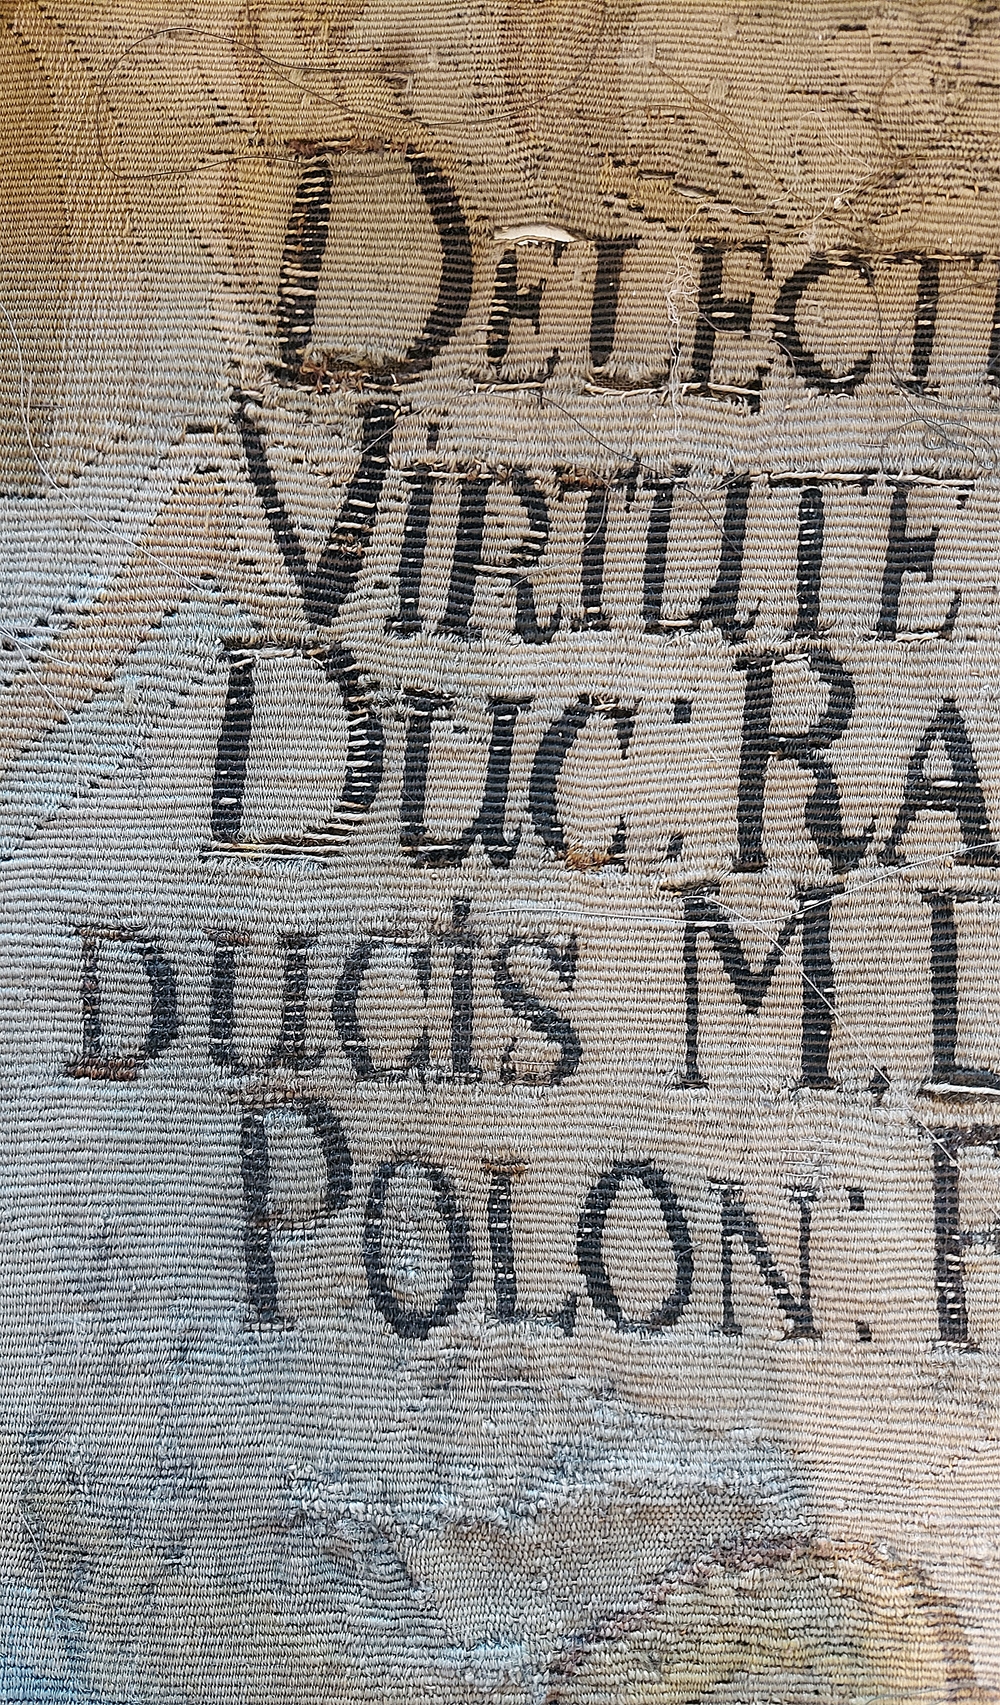 DELECT
VIRTUTE
DUC: RA
DUCIS M. L
POLON: